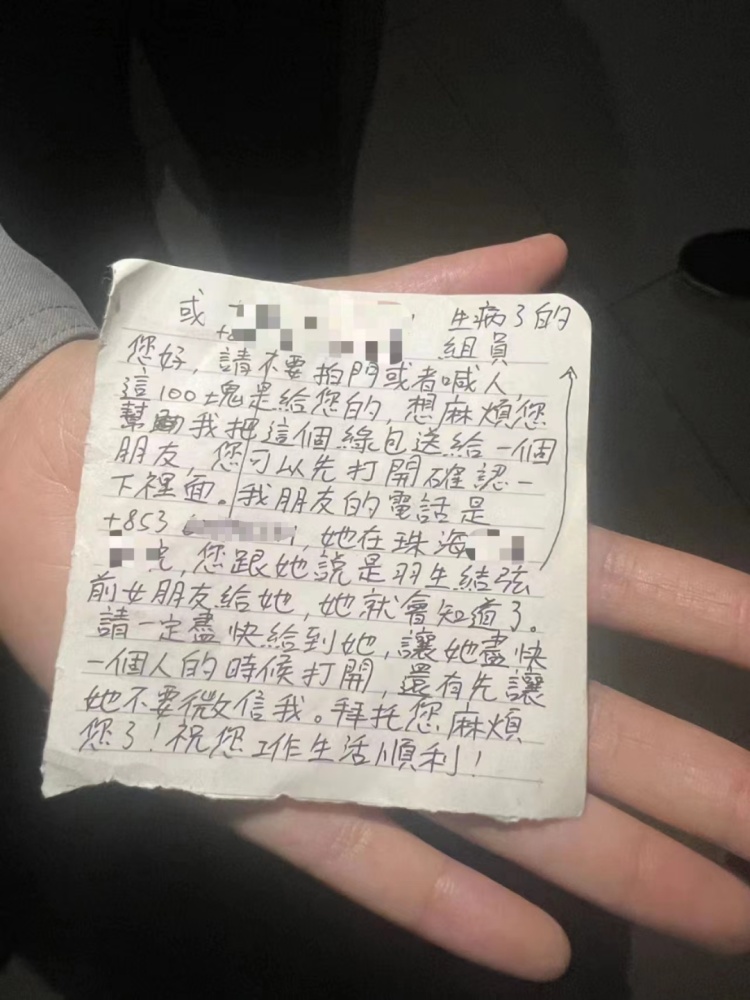 或 生病了的
組員
您好,請不要拍門或者喊人,
這100塊是給您的,想麻煩您
幫助我把這個綠包送給一個
朋友,您可以先打開確認一
下裡面。我朋友的電話是
+853 ,她在珠海
,您跟她說是羽生結弦
前女朋友給她,她就會知道了。
請一定盡快給到她,讓她盡快
一個人的時候打開,還有先讓
她不要微信我。拜托您麻煩
您了!祝您工作生活順利!